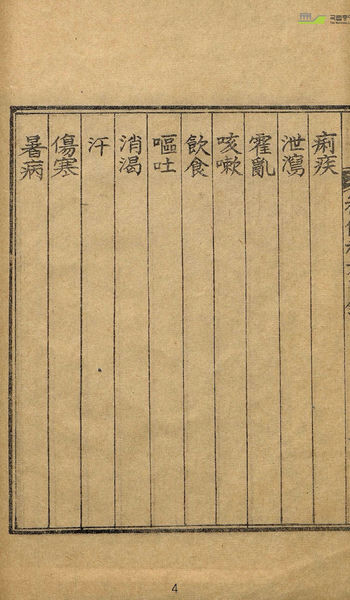 痢疾
泄瀉
霍亂
咳嗽
飲食
嘔吐
消渴
汗
傷寒
暑病
4